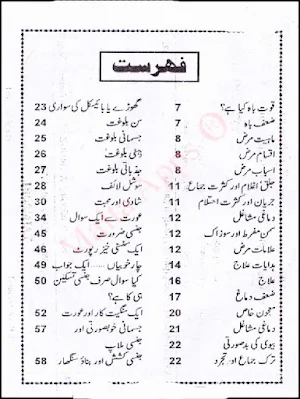 فہرست
قوت باہ کیا ہے؟ 7
ضعف باہ 7
ماہیت مرض 8
اقسام مرض 8
اسباب مرض 8
جلق، اغلام اور کثرت جماع 11
جریان اور کثرت احتلام 11
دماغی مشاغل 12
سمن مفرط اور سوزاک 12
علامات مرض 12
ہدایات علاج 14
علاج 16
ضعف دماغ 17
معجون خاص 20
دماغی مشاغل 21
بیوی کی بدصورتی 22
ترک جماع اور تجرد 22
گھوڑے یا بائیسکل کی سواری 23
سن بلوغت 24
جسمانی بلوغت 25
ذہنی بلوغت 26
جذباتی بلوغت 27
سوشل لائف 28
شادی اور محبت 30
عورت سے ایک سوال 34
جنسی ضرورت 45
ایک سنسنی خیز رپورٹ 46
چار خوبیاں ایک جواب 49
کیا سوال صرف جنسی تسکین 50
ہی کا ہے؟
ایک سنگیت کار اور عورت 52
جسمانی خوبصورتی اور 57
جنسی ملاپ
جنسی کشش اور بناؤ سنگھار 58